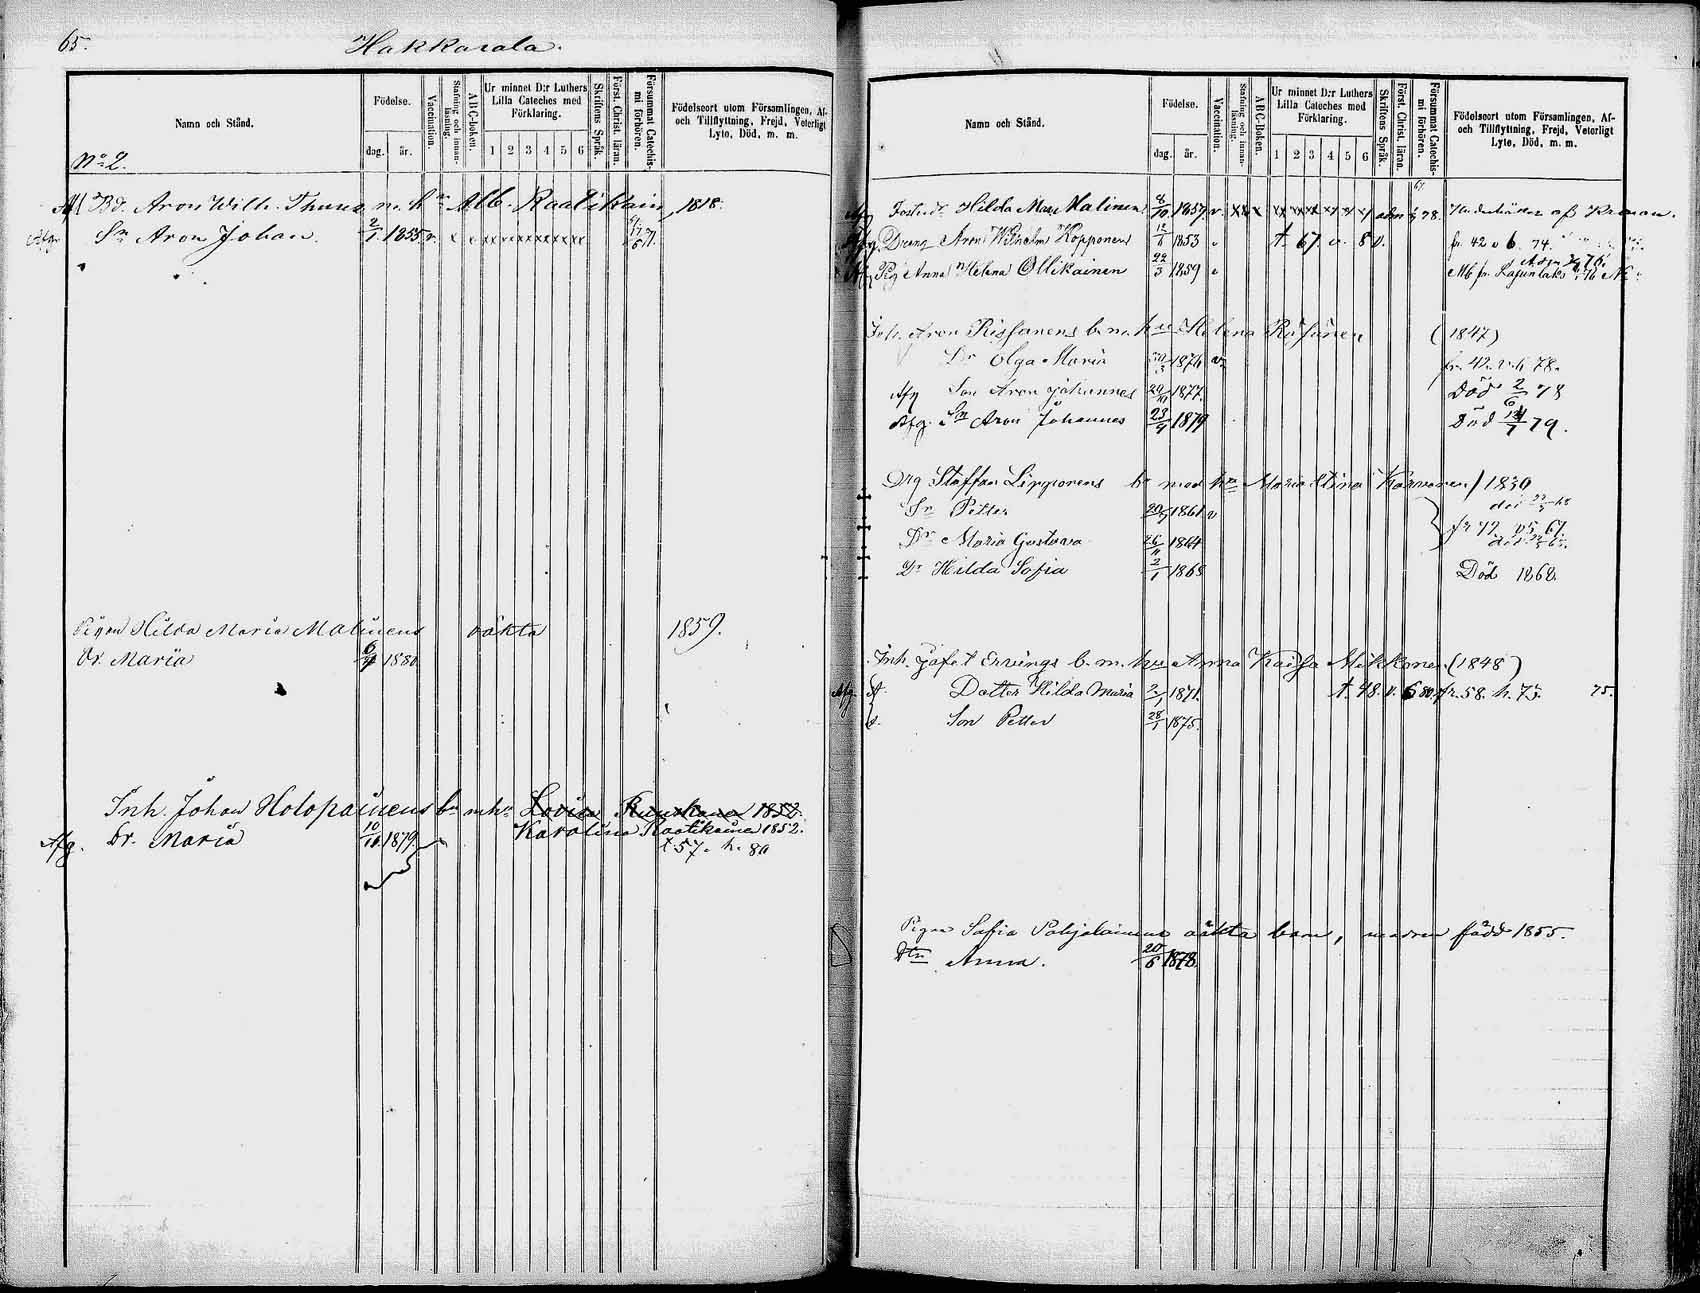 65.
Hakkarala.
Namn och Stånd.
Födelse.
dag.
år.
Vaccination.
Stafning och innan-läsning.
ABC-boken.
Ur minnet D:r Luthers
Lilla Cateches med
Förklaring.
1 2 3 4 5 6
Skriftens Språk.
Först. Christ. läran.
Försummat Catechis-mi förhören.
Födelseort utom Församlingen, Af-
och Tillflyttning, Frejd, Veterligt
Lyte, Död, m. m.
No 2.
Bd. Aron Wilh. Thunes m. hu Ulb. Raatikain 1818.
Sn Aron Johan. 2/1 1855 v.
Pigan Hilda Maria Malinens oäkta 1859.
Dr. Maria 6/4 1880
Inh. Johan Holopainens bn m hu Lovisa Ruuskanen 1852.
Karolina Raatikainen 1852.
Afg. Dr. Maria 10/10 1879. t. 57. h. 80
Namn och Stånd.
Födelse.
dag.
år.
Vaccination.
Stafning och innan-läsning.
ABC-Boken.
Ur minnet D:r Luthers
Lilla Cateches med
Förklaring.
1 2 3 4 5 6
Skriftens Språk.
Först. Christ. läran.
Försummat Catechis-mi förhören.
Födelseort utom Församlingen, Af-
och Tillflyttning, Frejd, Veterligt
Lyte, Död, m. m.
Hilda Mari Malinen 1857 v
Dreng Aron Wilhelm Kopponen 12/6 1853 t. 67. v. 80. fr. 42 v 6. 74.
Pig Anna Helena Ollikainen 22/3 1859
Inh. Aron Rissanens b. m. hu Helena Rissanen (1847)
Dr Olga Maria 1876 fr. 42. v. h 78.
Afg Son Aron Johannes 1877. Död 2/6 78
Afg. Sn Aron Johannes 23/4 1879 Död 79.
Drg Staffan Lipponens bn med hu Maria Stina Karvonen / 1830
Sn Petter 1861 v
Dr Maria Gustava 26/11 1864
Dr Hilda Sofia 2/1 1868 Död 1868.
Inh. Jafet Ervings b. m. hu Anna Kaisa Mikkone. (1848)
Afg. Dotter Hilda Maria 2/1 1871. t. 48. v. 80. fr. 58. h. 75. 75.
Son Petter 28/1 1875.
Pigan Sofia Pohjolainens oäkta barn, modren född 1855.
Anna. 20/6 1878.